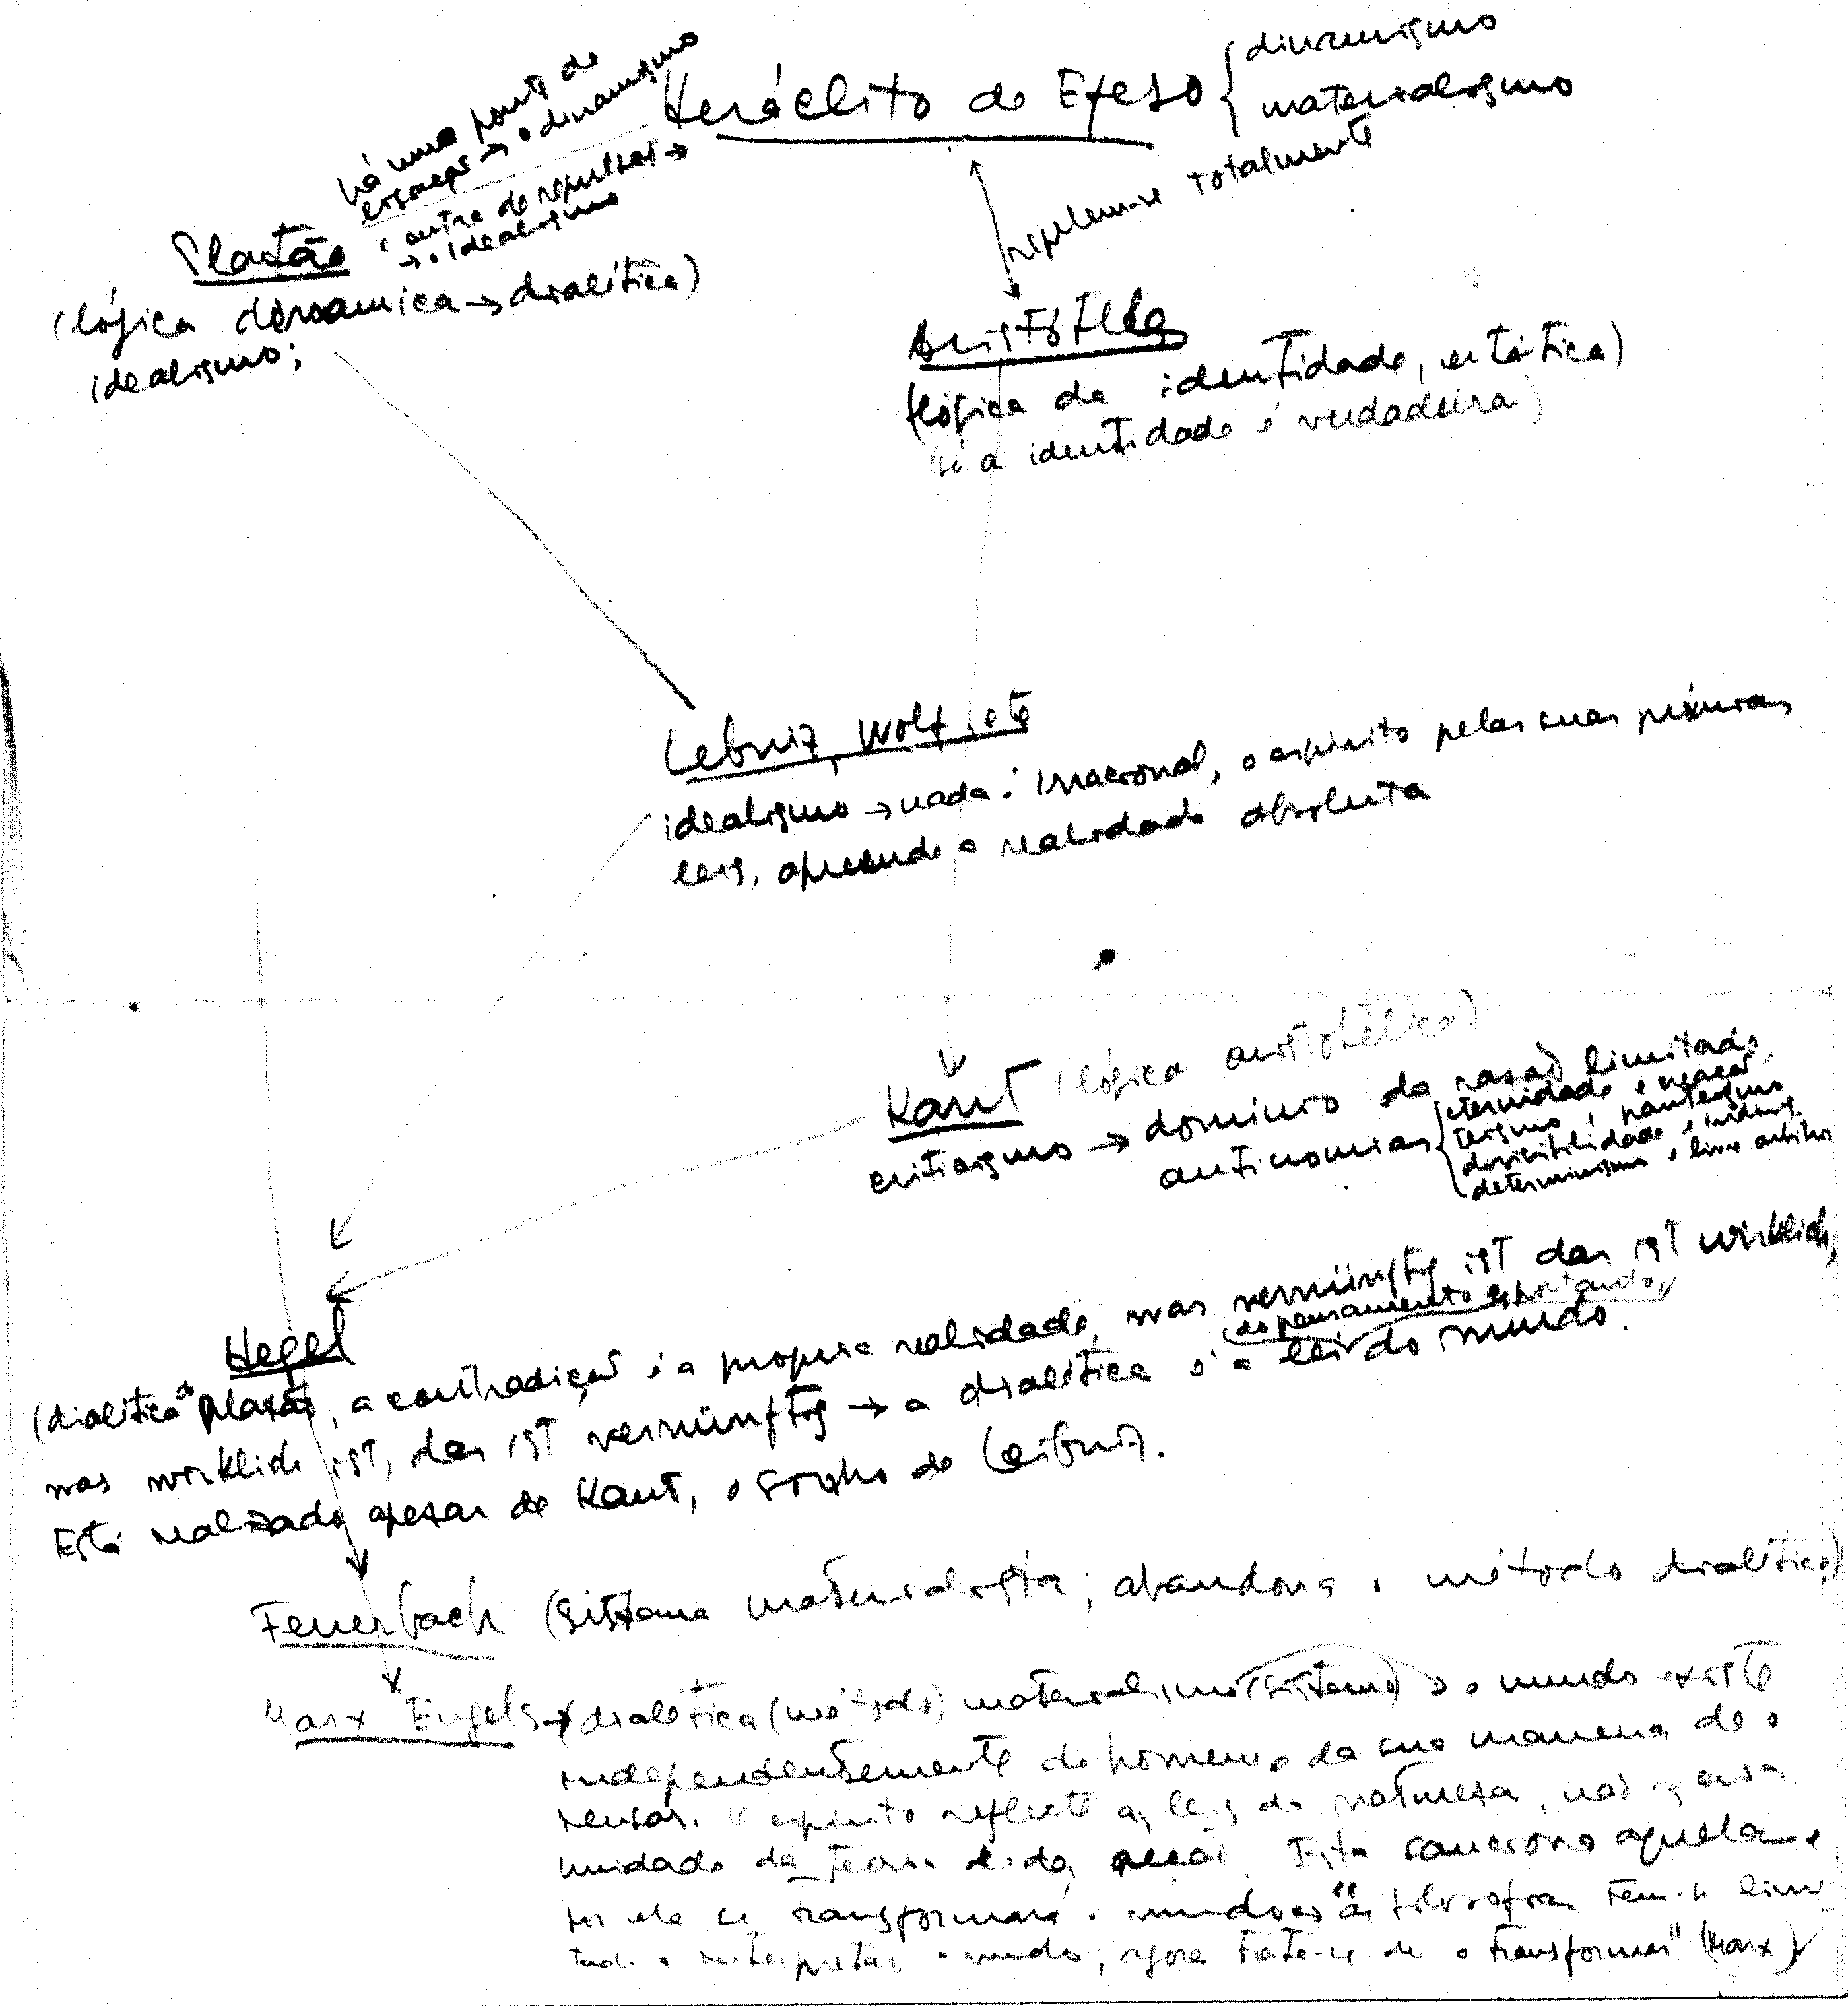 Heráclito de Efeso { dinamismo
materialismo
há uma ponte de
ligação → o dinamismo
e outra de repulsão →
→ o idealismo
repelem-se totalmente
Platão
(lógica dinâmica → dialética)
idealismo;
Aristóteles
(lógica da identidade, estática)
só a identidade é verdadeira)
Lebniz, Wolf, etc
idealismo → nada é irracional, o espírito pelas suas próprias
leis, apreende a realidade absoluta
Kant (lógica aristotélica)
criticismo → domínio da razão limitado,
antinomias { eternidade e criação
teismo e panteismo
divisibilidade e indiv.
determinismo e livre arbitrio
Hegel
(dialética de Platão, a contradição é a propria realidade, was vernünftig ist das ist wirklich,
was wirklich ist, das ist vernünftig → a dialética é a lei do mundo.
(do pensamento e portanto)
Está realizado apesar de Kant, o sonho de Leibniz.
Feuerbach (Sistema materialista; abandona o método dialético)
Marx Engels → (dialética (método) materialismo (sistema) → o mundo existe
independentemente do homem e da sua maneira de o
pensar. O espirito reflecte as leis da natureza, não as cria
unidade da teoria e da acção. Esta sanciona aquela e
por ela se transformará o mundo "as filosofias têm-se limi
tado a interpretar o mundo; agora trata-se de o transformar" (Marx)